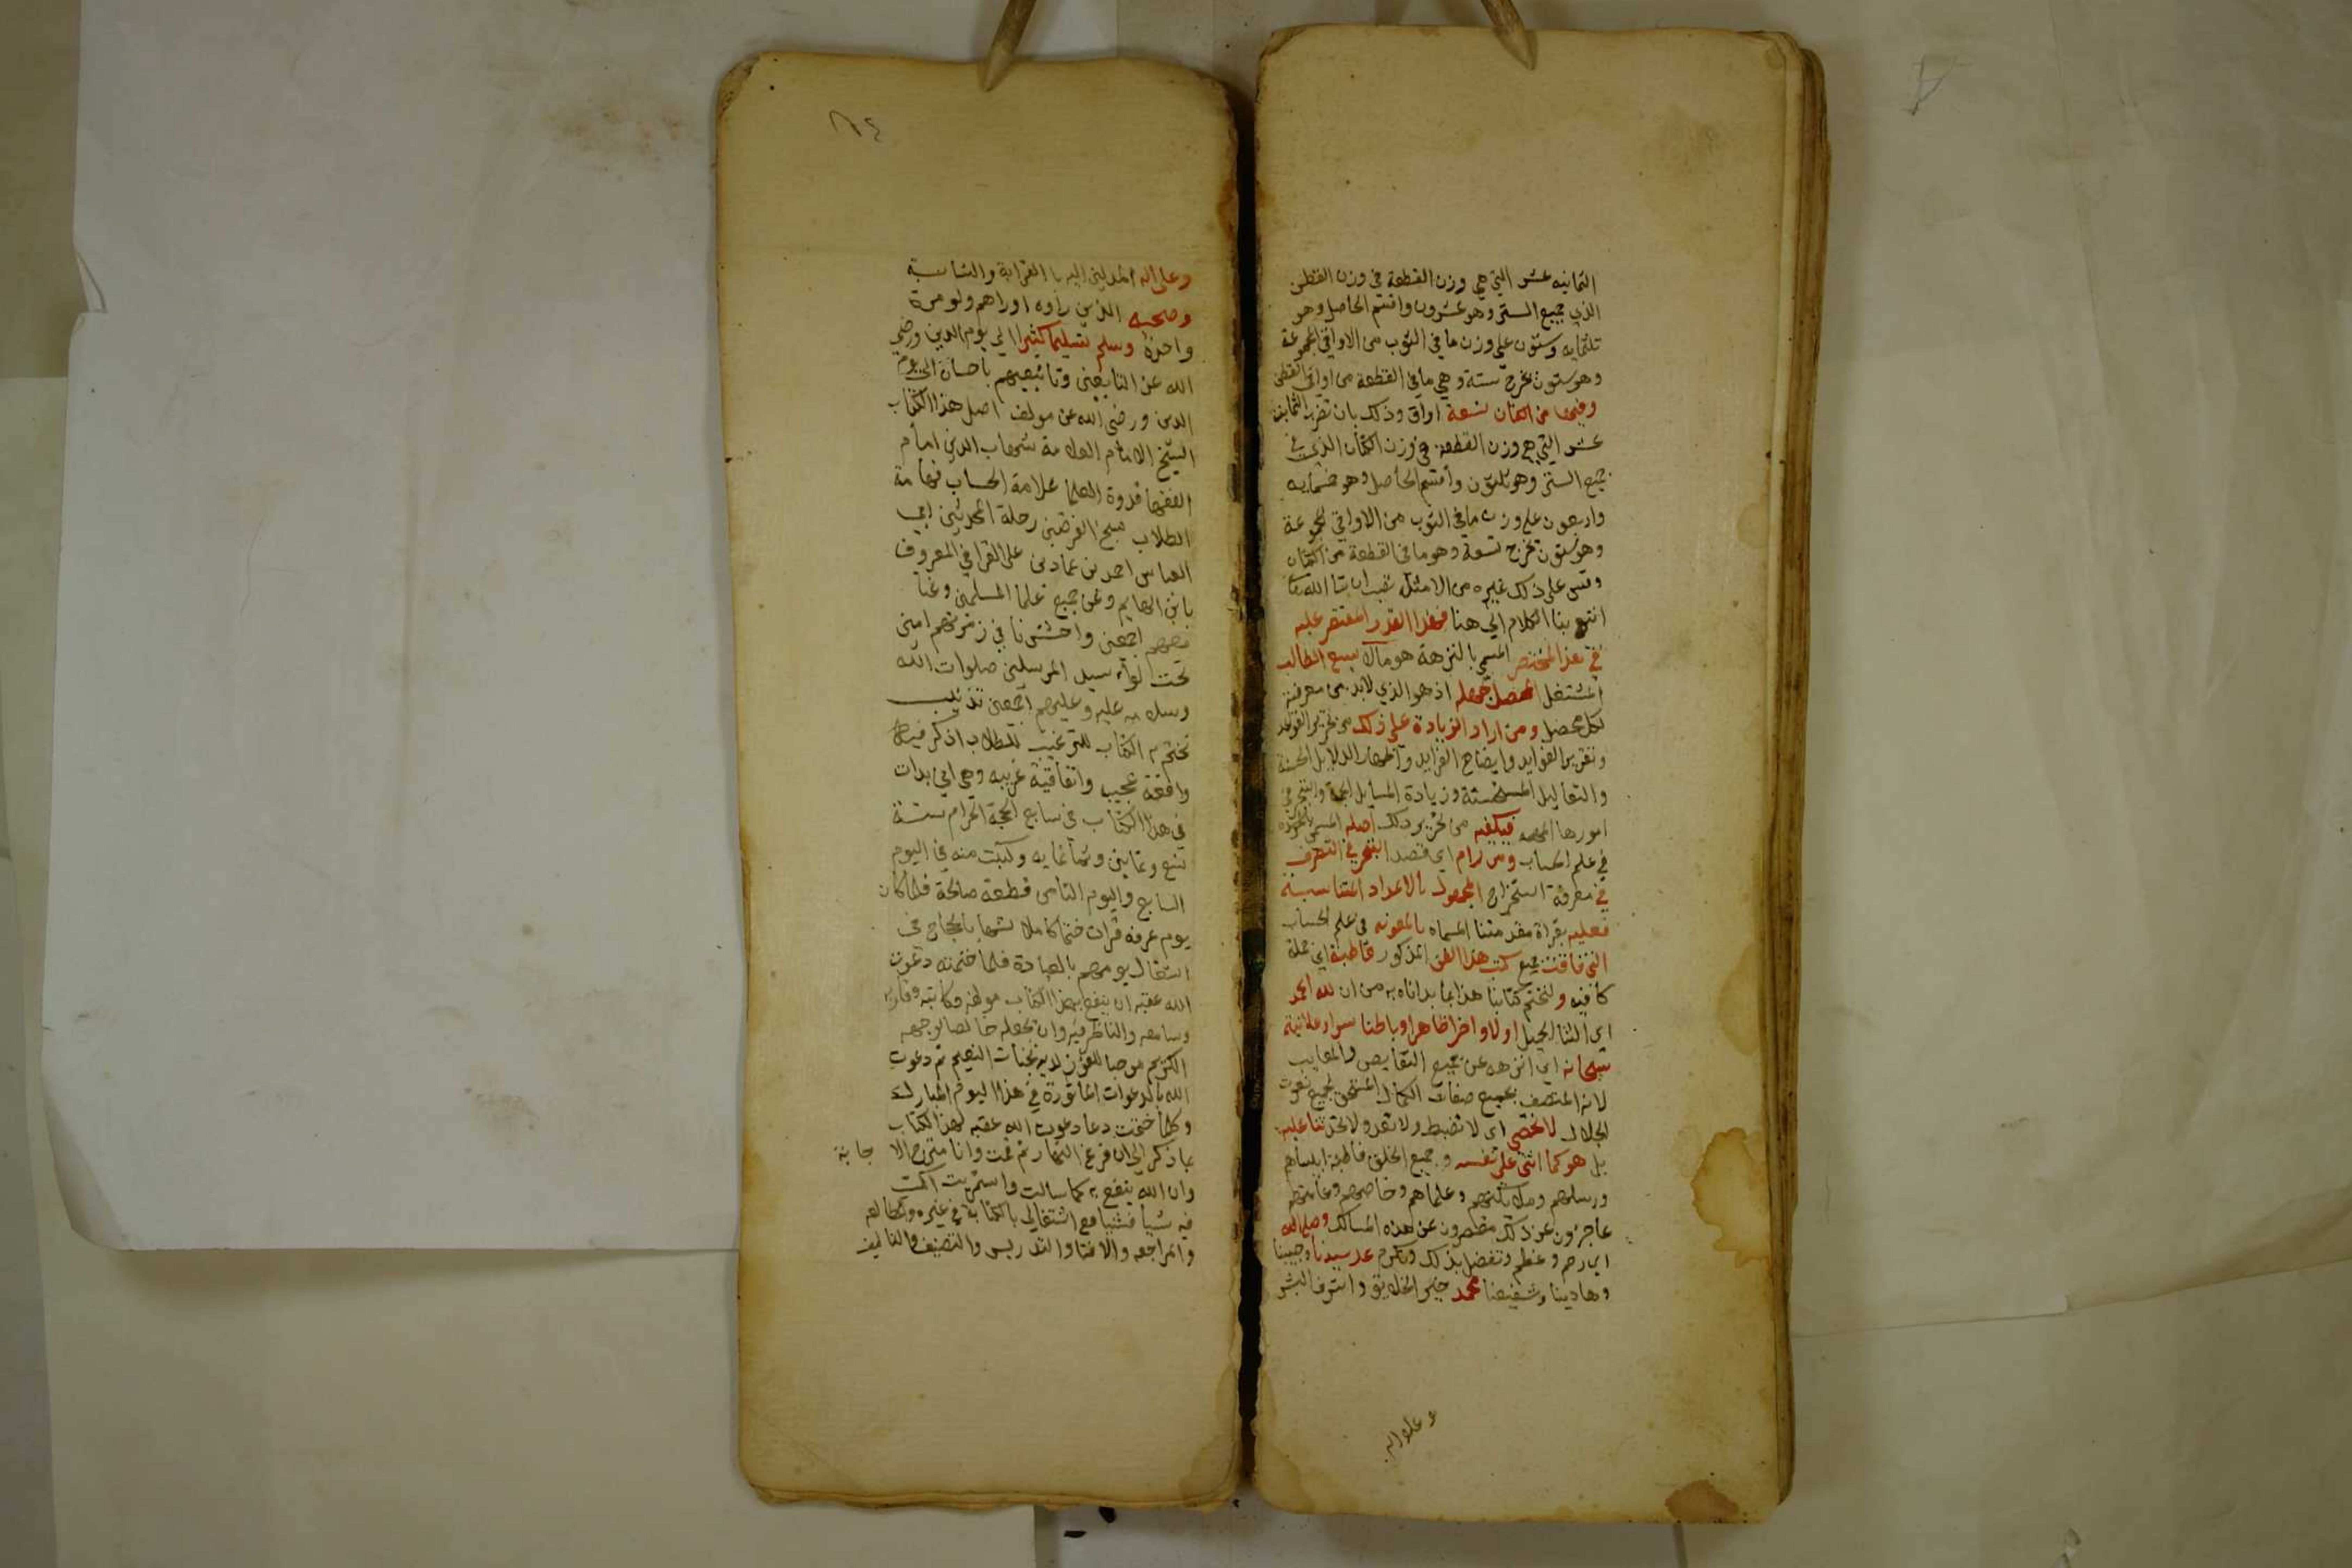 الثمانيه عشر التي هي وزن القطعة في وزن القطن
الذي بجميع الستر وهو عشرون واقسم الحاصل وهو
ثلثمايه وستون على وزن ما في الثوب من الاواقي المجموعة
وهو ستون يخرج ستة وهي ما في القطعة من اواقي القطن
وفيها من الكتان تسعة اواق وذلك بان تضرب الثمانية
عشر التي هي وزن القطعة في وزن الكتان الذي في
جميع الستر وهو ثلثون واقسم الحاصل وهو خمسمايه
واربعون على وزن ما في الثوب من الاواقي المجموعة
وهو ستون يخرج تسعة وهو ما في القطعة من الكتان
وقس على ذلك غيره من الامثلة تصب ان شا الله تعا
انتهى بنا الكلام الي هنا فهذا القدر المقتصر عليه
في هذا المختصر المسمي بالنزهة هو ما لا يسع الطالب
المشتغل المحصل جهله اذ هو الذي لابد من معرفته
لكل محصل ومن اراد الزيادة على ذلك من تحرير القواعد
وتقرير الفوايد وايضاح الفرايد واظهار الدلايل الحسنة
والتعاليل المستحسنة وزيادة المسايل
امورها المهمه فيكفيه من تحرير ذلك اصله المسمي
في علم الحساب ومن رام اي قصد التبحر في التصرف
في معرفة استخراج المجهول بالاعداد المتناسبة
فعليه بقراة مقدمتنا المسماه بالمعونه في علم الحساب
التي فاقت جميع كتب هذا الفن المذكور قاطبة اي جملة
كافيه ولنختم كتابنا هذا بما بداناه به من ان لله الحمد
اي الثنا الجميل اولا واخرا ظاهرا وباطنا سرا وعلانية
سبحانه اي انزهه عن جميع النقايص والمعايب
لانه المتصف بجميع صفات الكمال المستحق لجميع نعوت
الجلال لا نحصي اي لا نضبط ولا نعد ولا نحد ثنا عليه
بل هو كما اثنى على نفسه وجميع الخلق قاطبة انبياهم
ورسلهم وملائكتهم وعلماهم وخاصهم وعامتهم
عاجزون عن ذلك مقصرون عن هذه المسالك وصلى الله
اي رحم وعظم وتفضل بذلك وتكرم على سيدنا وحبيبنا
وهادينا وشفيعنا محمد خير الخلايق واشرف البشر
وعلى اله
٦٤
وعلى اله المدلين اليه بالقرابة والمناسبة
وصحبه الذين راوه او راهم ولو مرة
واحدة وسلم تسليما كثيرا الي يوم الدين ورضي
الله عن التابعين وتابعيهم باحسان الى يوم
الدين ورضي الله عن مولف اصل هذا الكتاب
الشيخ الامام العلامة شهاب الدين امام
الفقها قدوة العلما علامة الحساب فهامة
الطلاب مبجح الفرضيين رحلة المحدثين ابي
العباس احمد بن عماد بن على القرافي المعروف
بابن الهايم وعن جميع علما المسلمين وعنا
معهم اجمعين واحشرنا في زمرتهم امين
تحت لواء سيد المرسلين صلوات الله
وسلامه عليه وعليهم اجمعين تذنيب
نختم به الكتاب للترغيب للطلاب اذكر فيه
واقعة عجيبه واتفاقية غريبه وهي اني بدات
في هذا الكتاب في سابع الحجة الحرام سنة
تسع وثمانين وثمانمايه وكتبت منه في اليوم
السابع واليوم الثامن قطعة صالحة فلما كان
يوم عرفه قرات ختما كاملا تشبها بالحجاج في
اشتغال يومهم بالعبادة فلما ختمته دعوت
الله عقبه ان ينفع بهذا الكتاب مولفه وكاتبه وقاريه
وسامعه والناظر فيه وان يجعله خالصا لوجهه
الكريم موجبا للفوز لديه بجنات النعيم ثم دعوت
الله بالدعوات الماثورة في هذا اليوم المبارك
وكلما ختمت دعا دعوت الله عقبه لهذا الكتاب
بما ذكر الى ان فرغ النهار ثم قمت وانا مترج الاجابة
وان الله ينفع به كما سالت واستمريت اكتب
فيه شيا فشيا مع اشتغالي بالكتابة في غيره والمطالعه
والمراجعه والافتا والتدريس والتصنيف والتاليف